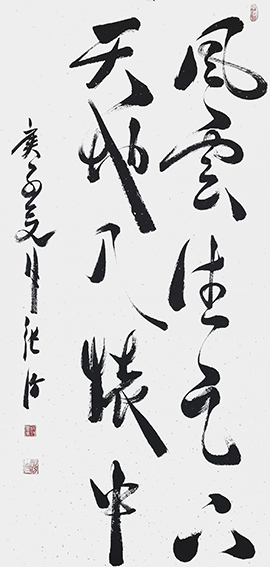 風雲生足下
天地入懷中
庚子夏月張